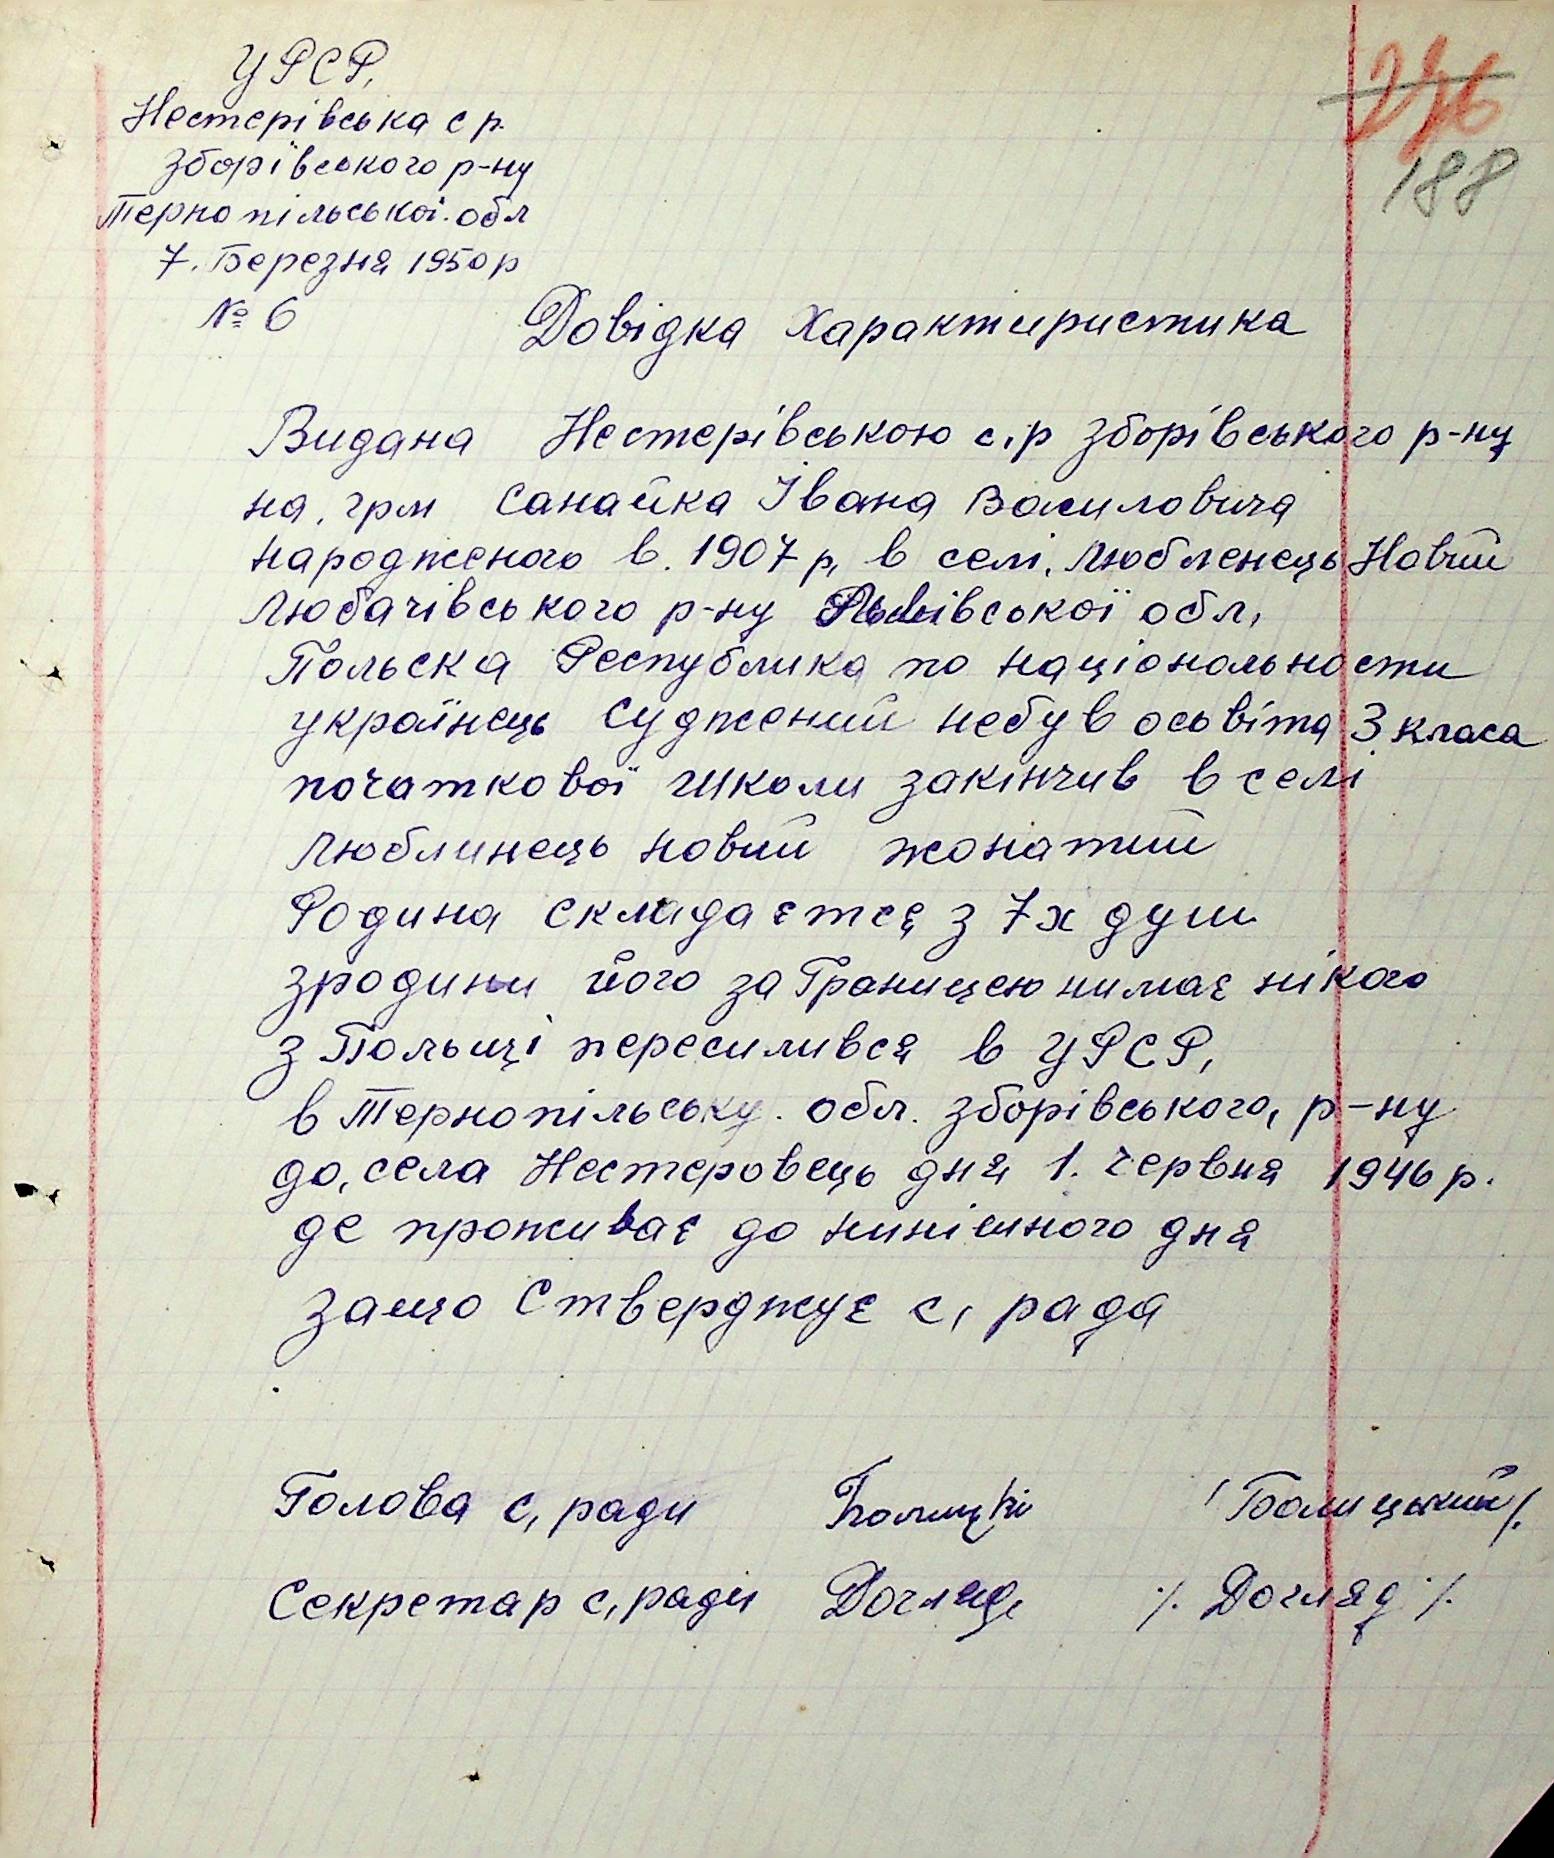 УРСР,
Нестерівська с р.
Зборівського р-ну
Тернопільської. обл
7. Березня 1950 р
№ 6
276
188
Довідка Характиристика
Видана Нестерівською с,р Зборівського р-ну
на, грм Санайка Івана Василовича
народженого в. 1907 р, в селі, Любленець Новий
Любачівського р-ну Львівської обл,
Польска Республика по національности
українець Суджений небув осьвіта 3 класа
початкової школи закінчив в селі
Люблинець новий жонатий
Родина складаєтся з 7х душ
зродини його за Границею нимає нікого
з Польщі пересилився в УРСР,
в Тернопільську. обл. Зборівського, р-ну
до, села Нестеровець дня 1. червня 1946 р.
де проживає до нинішного дня
защо Стверджує с, рада
Голова с, ради /Балицький/.
Секретар с, ради Догляд ./. Догляд ./.